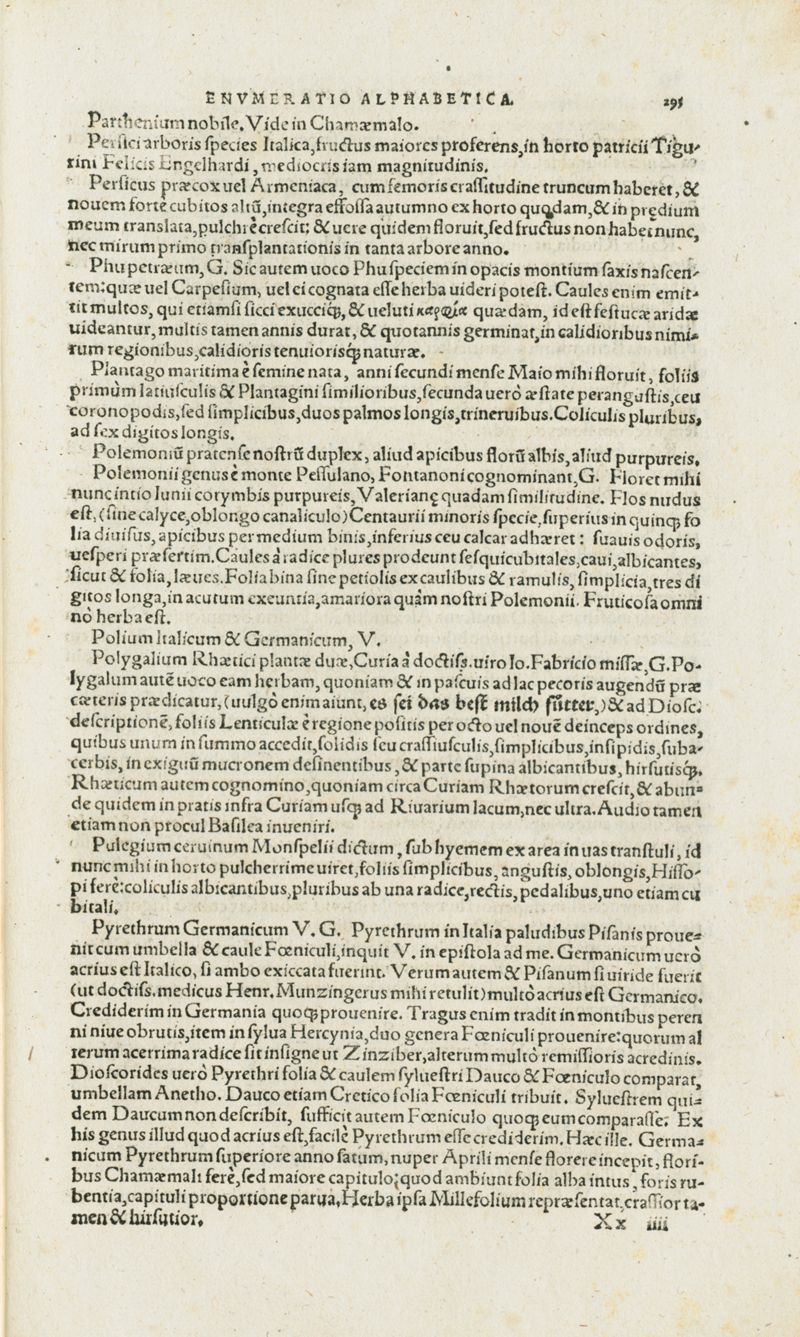 ENVMERATIO ALPHABETICA. 295
Parthenium nobile. Vide in Chamæmalo.
Persici arboris ſpecies Italica, fructus maiores proferens, in horto patricii Tigu-
rini Felicis Engelhardi, mediocris iam magnitudinis.
Perſicus præcox uel Armeniaca, cum femoris craſſitudine truncum haberet, &
nouem fortè cubitos altũ, integra effoſſa autumno ex horto quodam, & in prędium
meum translata, pulchrè creſcit: & uere quidem floruit, ſed fructus non habet nunc,
nec mirum primo tranſplantationis in tanta arbore anno.
Phu petræum, G. Sic autem uoco Phu ſpeciem in opacis montium ſaxis naſcen-
tem: quæ uel Carpeſium, uel ei cognata eſſe herba uideri poteſt. Caules enim emit-
tit multos, qui etiamſi ſicci exucciq́;, & ueluti καρφία quædam, id eſt feſtucæ aridæ
uideantur, multis tamen annis durat, & quotannis germinat, in calidioribus nimi-
rum regionibus, calidioris tenuiorisq́; naturæ.
Plantago maritima è ſemine nata, anni ſecundi menſe Maio mihi floruit, foliis
primùm latiuſculis & Plantagini ſimilioribus, ſecunda uerò æſtate peranguſtis, ceu
coronopodis, ſed ſimplicibus, duos palmos longis, trineruibus. Coliculis pluribus,
ad ſex digitos longis.
Polemoniũ pratenſe noſtrũ duplex, aliud apicibus florũ albis, aliud purpureis.
Polemonii genus è monte Peſſulano, Fontanoni cognominant, G. Floret mihi
nunc intio Iunii corymbis purpureis, Valerianę quadam ſimilitudine. Flos nudus
eſt, (ſine calyce, oblongo canaliculo) Centaurii minoris ſpecie, ſuperius in quinq; fo
lia diuiſus, apicibus per medium binis, inferius ceu calcar adhæret: ſuauis odoris,
ueſperi præſertim. Caules à radice plures prodeunt ſeſquicubitales, caui, albicantes,
ſicut & folia, læues. Folia bina ſine petiolis ex caulibus & ramulis, ſimplicia, tres di
gitos longa, in acutum exeuntia, amariora quàm noſtri Polemonii. Fruticoſa omni
no herba eſt.
Polium Italicum & Germanicum, V.
Polygalium Rhætici plantæ duæ, Curia à doctiſs. uiro Io. Fabricio miſſæ, G. Po-
lygalum autẽ uoco eam herbam, quoniam & in paſcuis ad lac pecoris augendũ præ
cæteris prædicatur, (uulgò enim aiunt, es ſei das beſt milch fůtter,) & ad Dioſc.
deſcriptionẽ, foliis Lenticulæ è regione poſitis per octo uel nouẽ deinceps ordines,
quibus unum in ſummo accedit, ſolidis ſeu craſſiuſculis, ſimplicibus, inſipidis, ſuba-
cerbis, in exiguũ mucronem deſinentibus, & parte ſupina albicantibus, hirſutisq́;.
Rhæticum autem cognomino, quoniam circa Curiam Rhætorum creſcit, & abun-
de quidem in pratis infra Curiam uſq; ad Riuarium lacum, nec ultra. Audio tamen
etiam non procul Baſilea inueniri.
Pulegium ceruinum Monſpelii dictum, ſub hyemem ex area in uas tranſtuli, id
nunc mihi in horto pulcherrime uiret, foliis ſimplicibus, anguſtis, oblongis, Hiſſo-
pi ferè: coliculis albicantibus, pluribus ab una radice, rectis, pedalibus, uno etiam cu
bitali.
Pyrethrum Germanicum V. G. Pyrethrum in Italia paludibus Piſanis proue-
nit cum umbella & caule Fœniculi, inquit V. in epiſtola ad me. Germanicum uerò
acrius eſt Italico, ſi ambo exiccata fuerint. Verum autem & Piſanum ſi uiride fuerit
(ut doctiſs. medicus Henr. Munzingerus mihi retulit) multò acrius eſt Germanico.
Crediderim in Germania quoq; prouenire. Tragus enim tradit in montibus peren
ni niue obrutis, item in ſylua Hercynia, duo genera Fœniculi prouenire: quorum al
terum acerrima radice ſit inſigne ut Zinziber, alterum multò remiſſioris acredinis.
Dioſcorides uerò Pyrethri folia & caulem ſylueſtri Dauco & Fœniculo comparat,
umbellam Anetho. Dauco etiam Cretico folia Fœniculi tribuit. Sylueſtrem qui-
dem Daucum non deſcribit, ſufficit autem Fœniculo quoq; eum comparaſſe. Ex
his genus illud quod acrius eſt, facilè Pyrethrum eſſe crediderim. Hæc ille. Germa-
nicum Pyrethrum ſuperiore anno ſatum, nuper Aprili menſe florere incepit, flori-
bus Chamæmali ferè, ſed maiore capitulo; quod ambiunt folia alba intus, foris ru-
bentia, capituli proportione parua. Herba ipſa Millefolium repræſentat, craſſior ta-
men & hirſutior.
Xx iiii